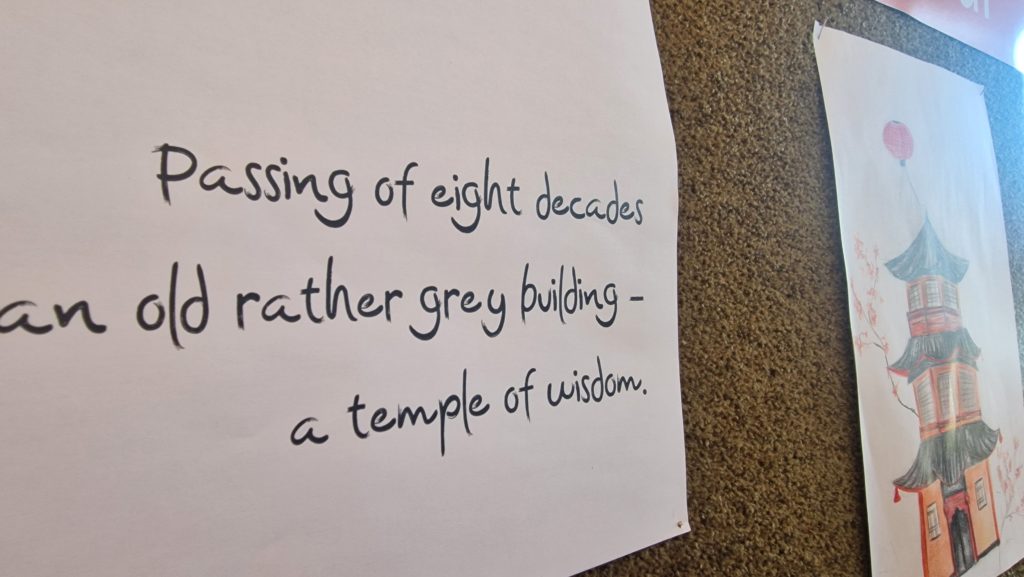 Passing of eight decades
an old rather grey building -
a temple of wisdom.